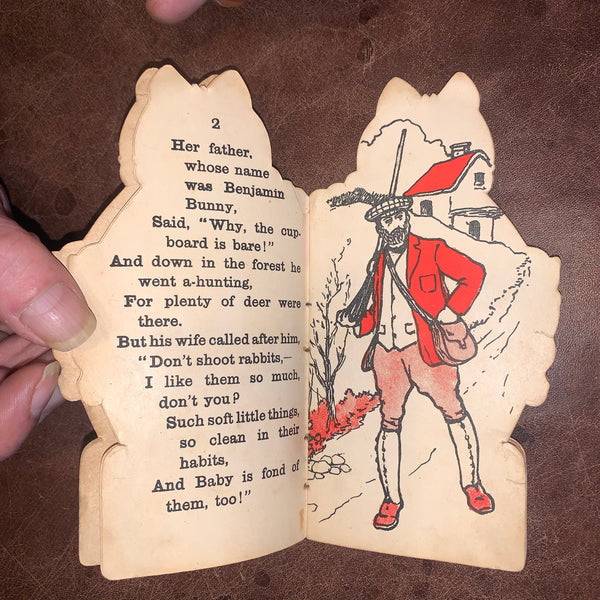 2
Her father,
whose name
was Benjamin
Bunny,
Said, “Why, the cup-
board is bare!”
And down in the forest he
went a-hunting,
For plenty of deer were
there.
But his wife called after him,
“Don’t shoot rabbits,—
I like them so much,
don’t you?
Such soft little things,
so clean in their
habits,
And Baby is fond of
them, too!”